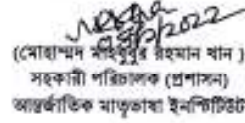 ০৭/৮/2022
(মোহাম্মদ মাহবুবুর রহমান খান )
সহকারী পরিচালক (প্রশাসন)
আন্তর্জাতিক মাতৃভাষা ইনস্টিটিউট